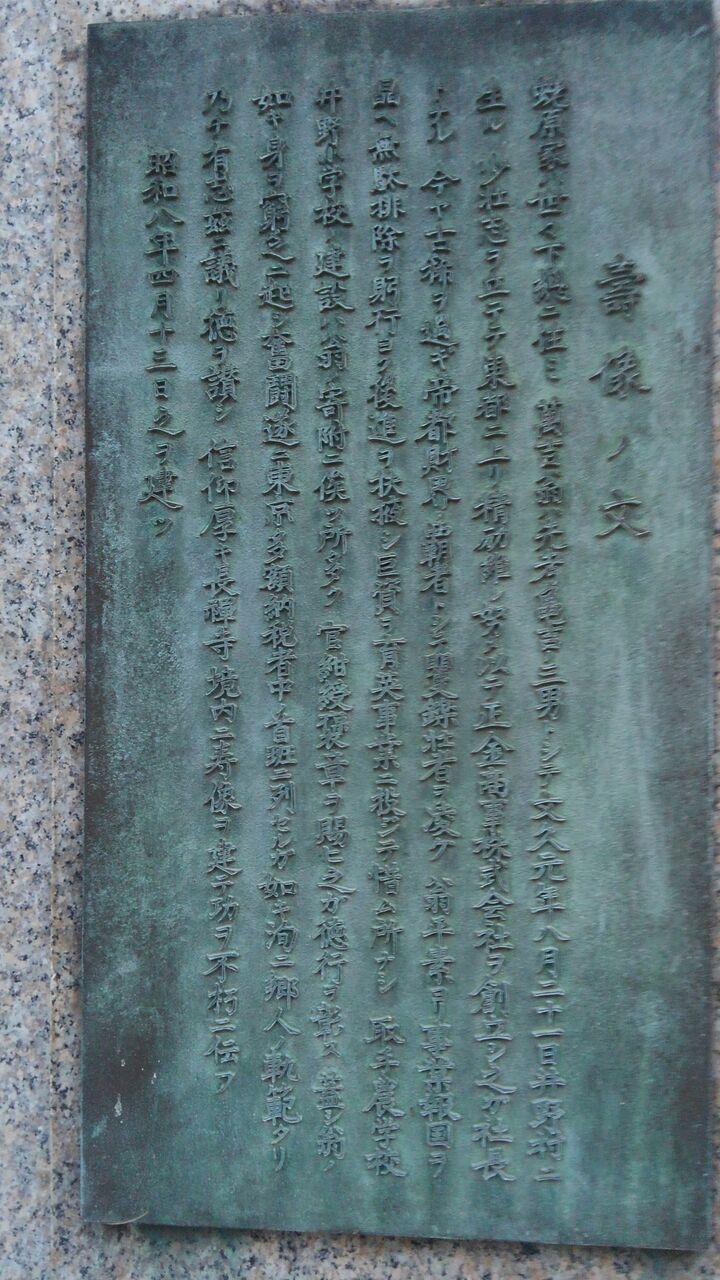 壽像ノ文
蛯原家世々下總ニ住ミ 萬吉翁ハ先考亀吉ノ三男トシテ文久元年八月二十一日井野村ニ
生ル 少壮志ヲ立テテ東都ニ上リ精励維レ努メ次テ正金商事株式会社ヲ創立シ之ガ社長
トナル 今ヤ古稀ヲ過ギ帝都財界ノ覇者トシテ矍鑠壮者ヲ凌ク 翁平素ヨリ事業報国ヲ
昷ヘ無駄排除ヲ躬行ヨク後進ヲ扶掖シ巨資ヲ育英事業ニ投ジテ惜ム所ナシ 取手農学校
井野小学校ノ建設ハ翁ノ寄附ニ俟ツ所多ク 官紺綬褒章ヲ賜ヒ之ガ徳行ヲ彰ス 蓋シ翁ノ
如キ身ヲ窮乏ニ起シ奮闘遂ニ東京多額納税者中ノ首班ニ列セルガ如キ洵ニ郷人ノ軌範タリ
乃チ有志玆ニ議リ徳ヲ讃シ 信仰厚キ長禪寺境内ニ寿像ヲ建テ功ヲ不朽ニ伝フ
昭和八年四月十三日之ヲ建ツ